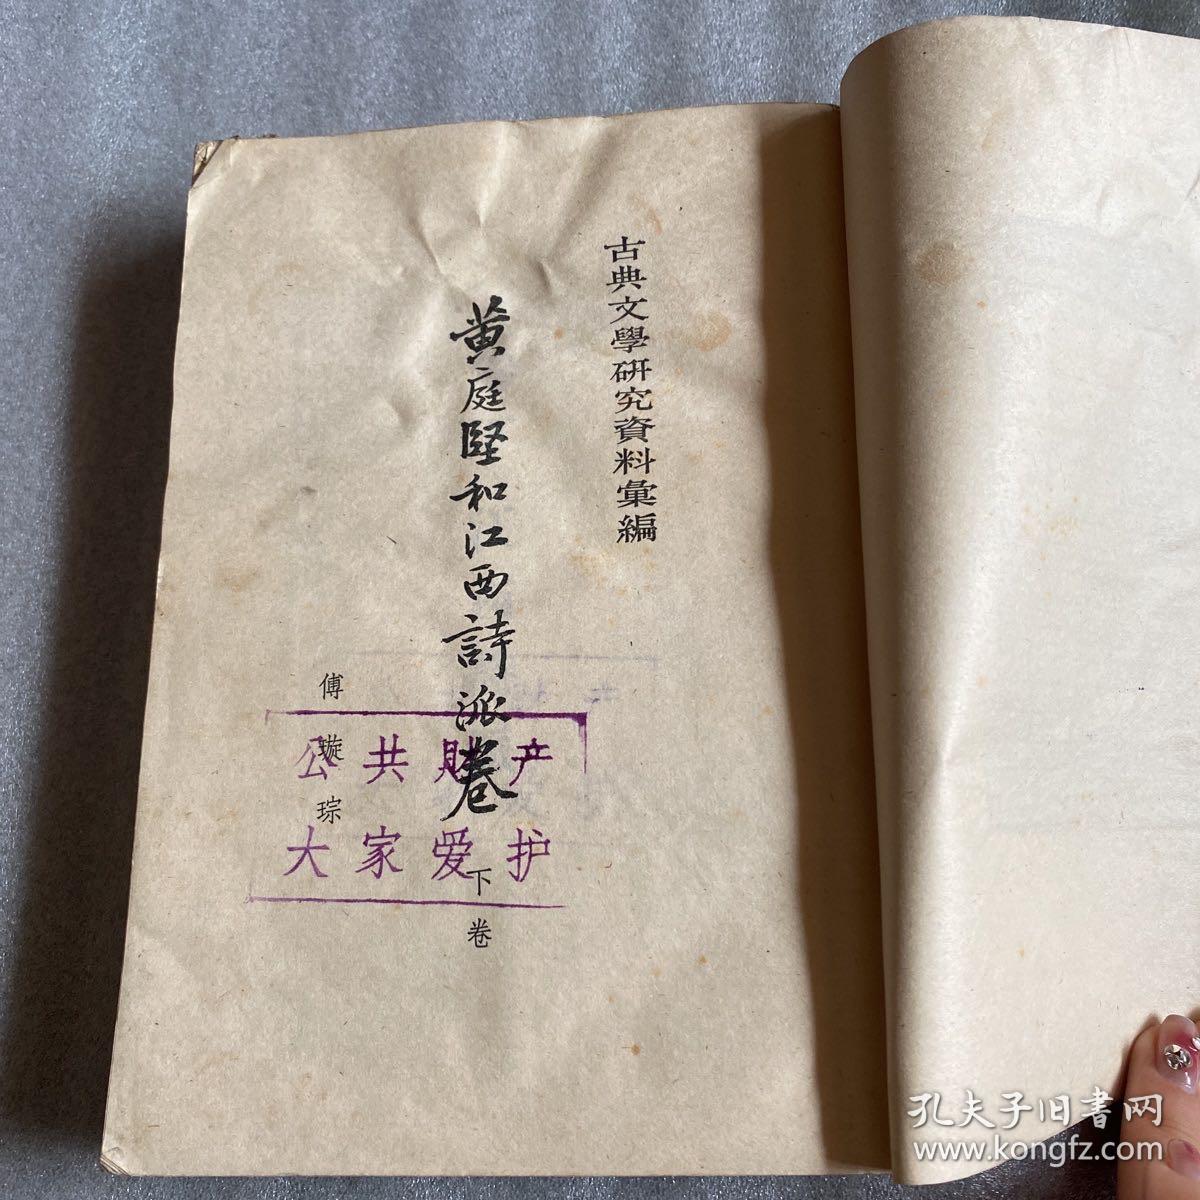 古典文學研究資料彙編
黄庭堅和江西詩派卷
下卷
傅璇琮
公共财产
大家爱护
孔夫子旧书网
www.kongfz.com